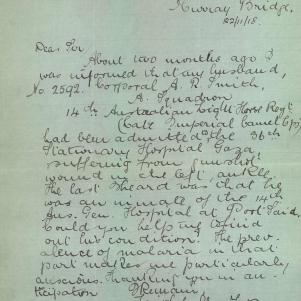 Murray Bridge,
22/11/18.
Dear Sir
About two months ago I
was informed that my husband,
No. 2592. Corporal A. R. Smith,
A. Squadron
14th Australian Light Horse Regt
(late Imperial Camel Cps)
had been admitted to the 36th
Stationary Hospital Gaza,
suffering from gunshot
wound in the left ankle.
The last I heard was that he
was an inmate of the 14th
Aus. Gen. Hospital at Port Said.
Could you help me to find
out his condition. The prev-
alence of malaria in that
part makes me particularly
anxious. Thanking you in an-
ticipation
I remain